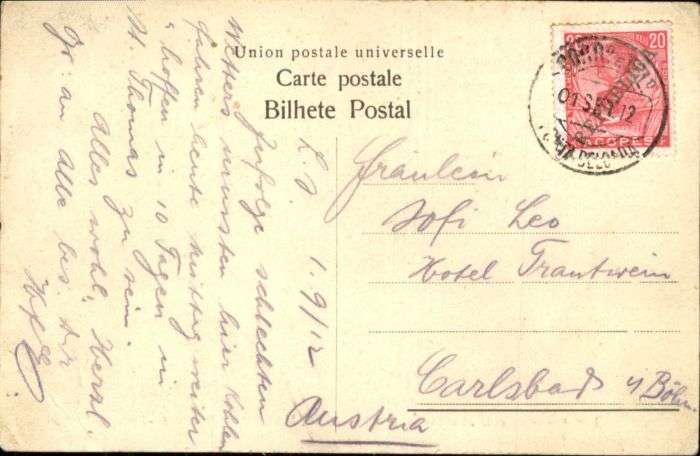 Union postale universelle
Carte postale
Bilhete Postal
20
AÇORES
01 SET 12
PONTA DELGADA
Fräulein
Sofi Leo
Hotel Trautwein
Carlsbad
Austria
L. S. 1.9/12
Infolge schlechten
Wetters mussten hier Kohlen
fahren heute Mittag weiter
u. hoffen in 10 Tagen in
St. Thomas zu sein.
Alles wohl, Herzl.
Gr: an Alle bes. Dir